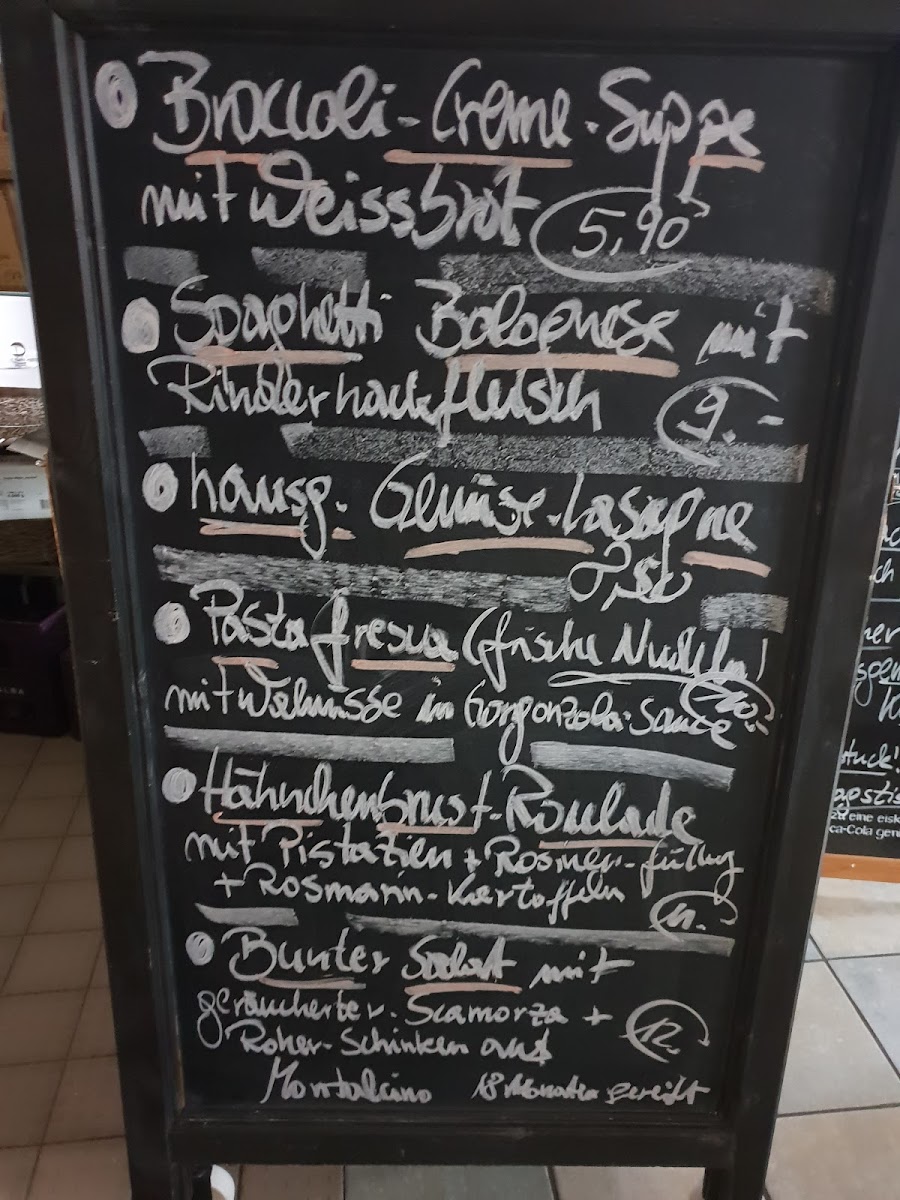 Broccoli-Creme-Suppe
mit Weissbrot 5,90
Spaghetti Bolognese mit
Rinderhackfleisch 9.-
hausg. Gemüse-Lasagne
8,50
Pasta fresca (frische Nudeln)
mit Walnüsse in Gorgonzola-Sauce
Hähnchenbrust-Roulade
mit Pistazien + Rosinen-füllung
+ Rosmarin-Kartoffeln
Bunter Salat mit
geräucherter Scamorza + 12.
Roher-Schinken aus
Montalcino 18 Monate gereift